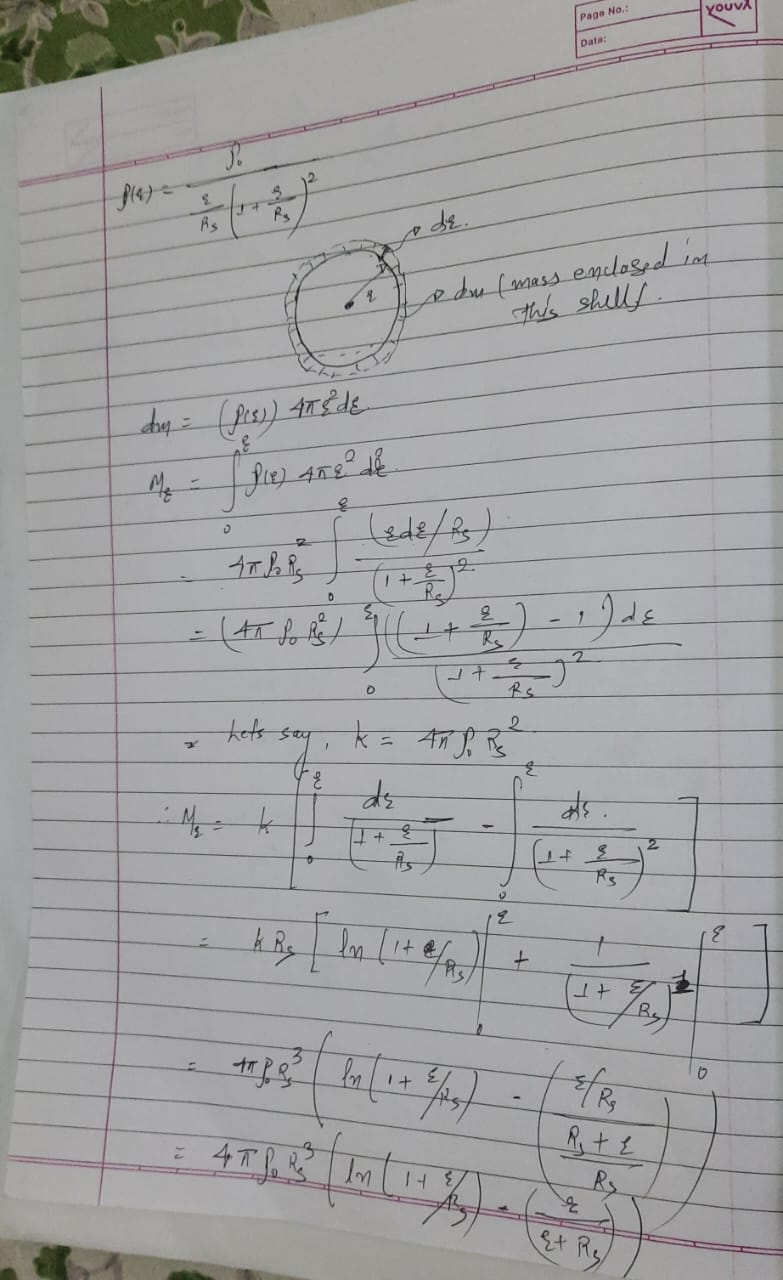 Page No.:
Date:
YOUVA
ρ(r) = ρ₀ / ( r/Rₛ (1 + r/Rₛ)² )
dr.
r
dm (mass enclosed in
this shell).
dm = (ρ(r)) 4πr²dr
Mᵣ = ∫₀ʳ ρ(r) 4πr² dr.
= 4πρ₀Rₛ² ∫₀ʳ (rdr/Rₛ) / (1 + r/Rₛ)²
= (4πρ₀Rₛ²) ∫₀ʳ ((1 + r/Rₛ) - 1) dr / (1 + r/Rₛ)²
Lets say, k = 4πρ₀Rₛ²
∴ Mᵣ = k [ ∫₀ʳ dr / (1 + r/Rₛ) - ∫₀ʳ dr. / (1 + r/Rₛ)² ]
= kRₛ [ ln (1 + r/Rₛ) |₀ʳ + 1 / (1 + r/Rₛ) |₀ʳ ]
= 4πρ₀Rₛ³ ( ln (1 + r/Rₛ) - ( (r/Rₛ) / ((Rₛ + r)/Rₛ) ) )
= 4πρ₀Rₛ³ ( ln (1 + r/Rₛ) - ( r / (r + Rₛ) ) )